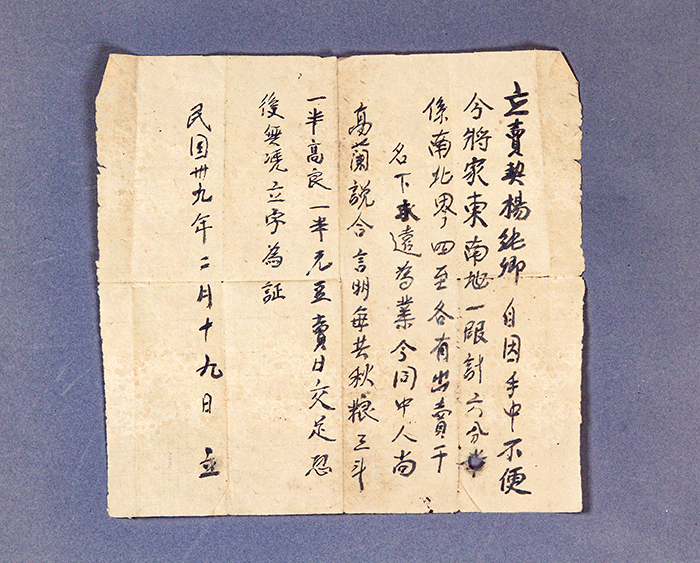 立賣契楊純卿自因手中不便
今將家東南地一段計六分半
係南北畛四至各有出賣于
名下永遠為業今同中人尚
高蘭說合言明每共秋粮三斗
一半高良一半元豆賣日交足恐
後無凴立字為証
民国卅九年二月十九日 立